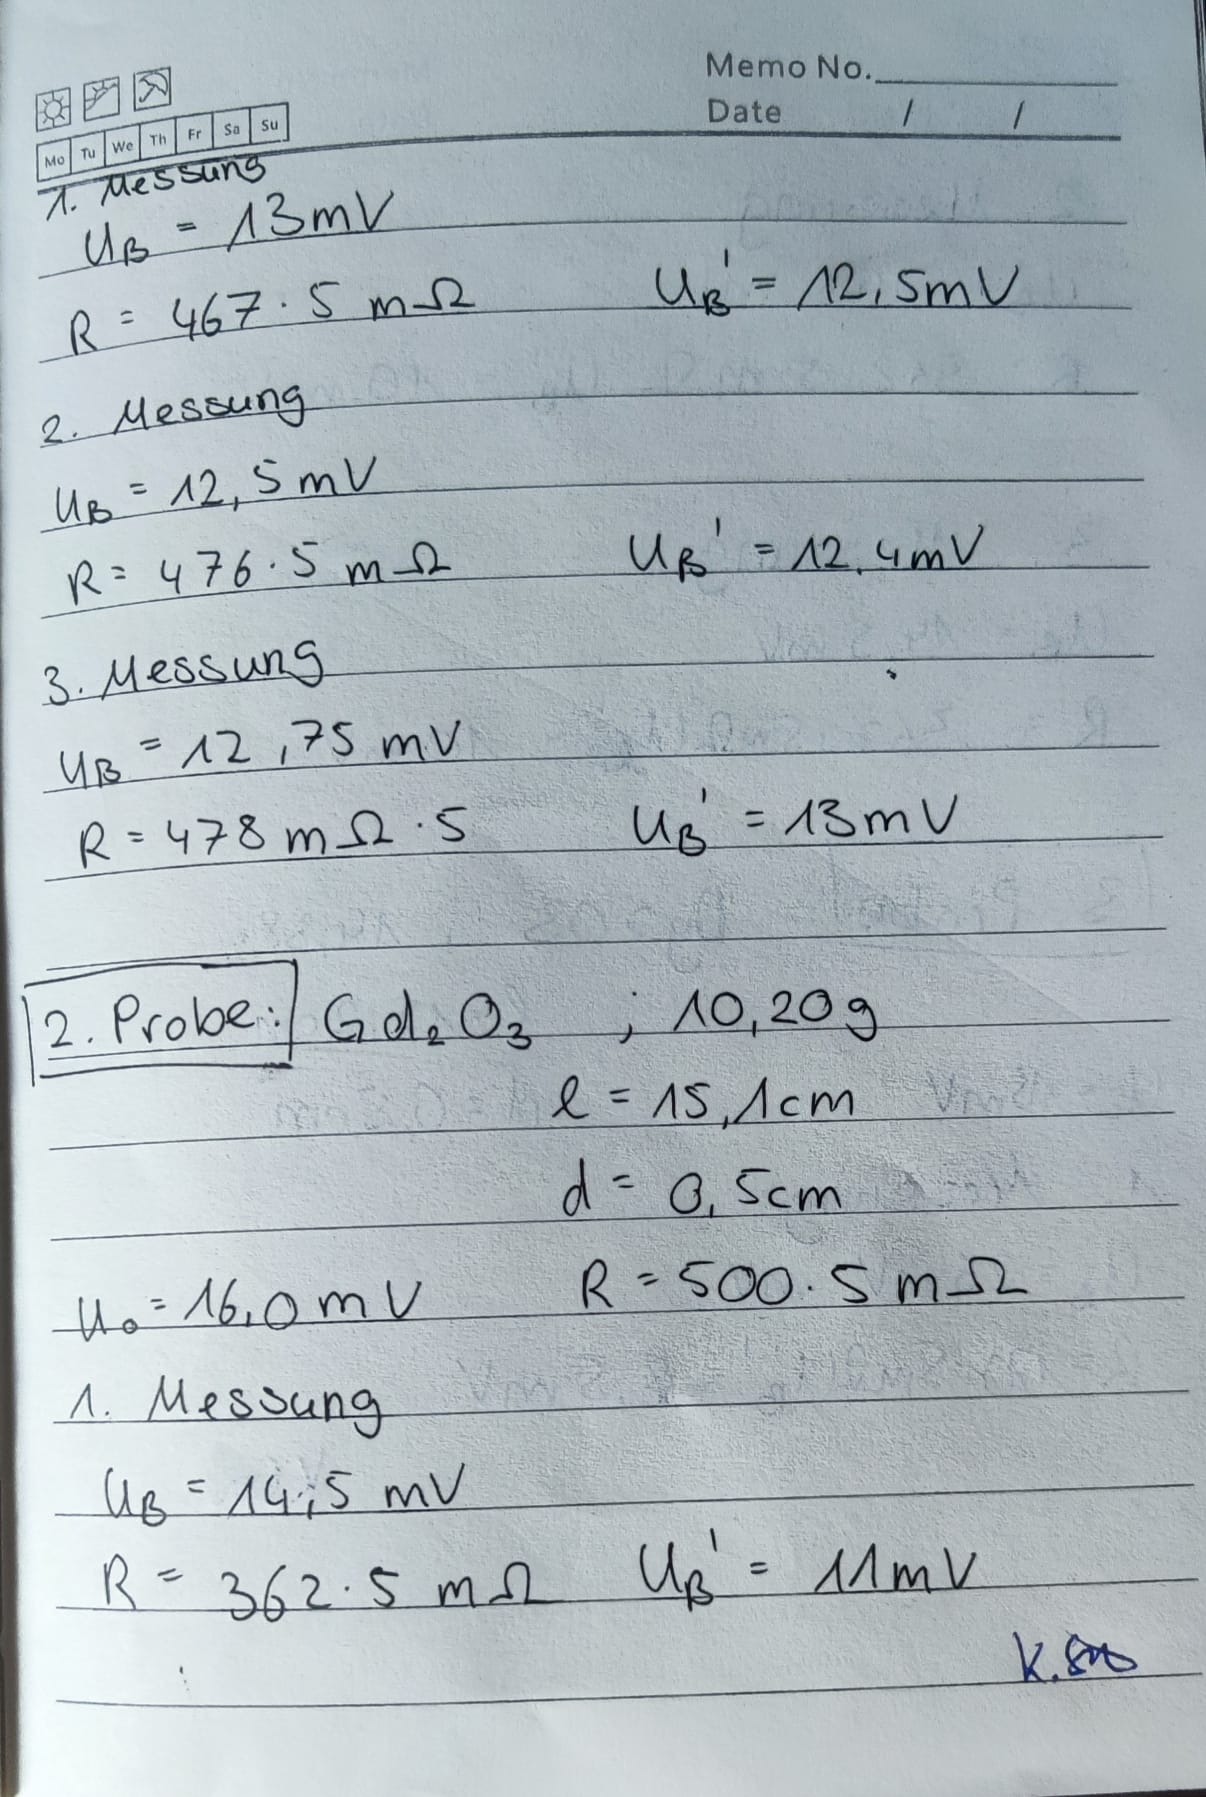 Memo No.
Date / /
Mo Tu We Th Fr Sa Su
1. Messung
U_B = 13mV
R = 467·5 mΩ U_B' = 12,5mV
2. Messung
U_B = 12,5mV
R = 476·5 mΩ U_B' = 12,4mV
3. Messung
U_B = 12,75 mV
R = 478 mΩ·5 U_B' = 13mV
2. Probe: Gd₂O₃ ; 10,20g
l = 15,1cm
d = 0,5cm
U₀ = 16,0mV R = 500·5 mΩ
1. Messung
U_B = 14,5 mV
R = 362·5 mΩ U_B' = 11mV